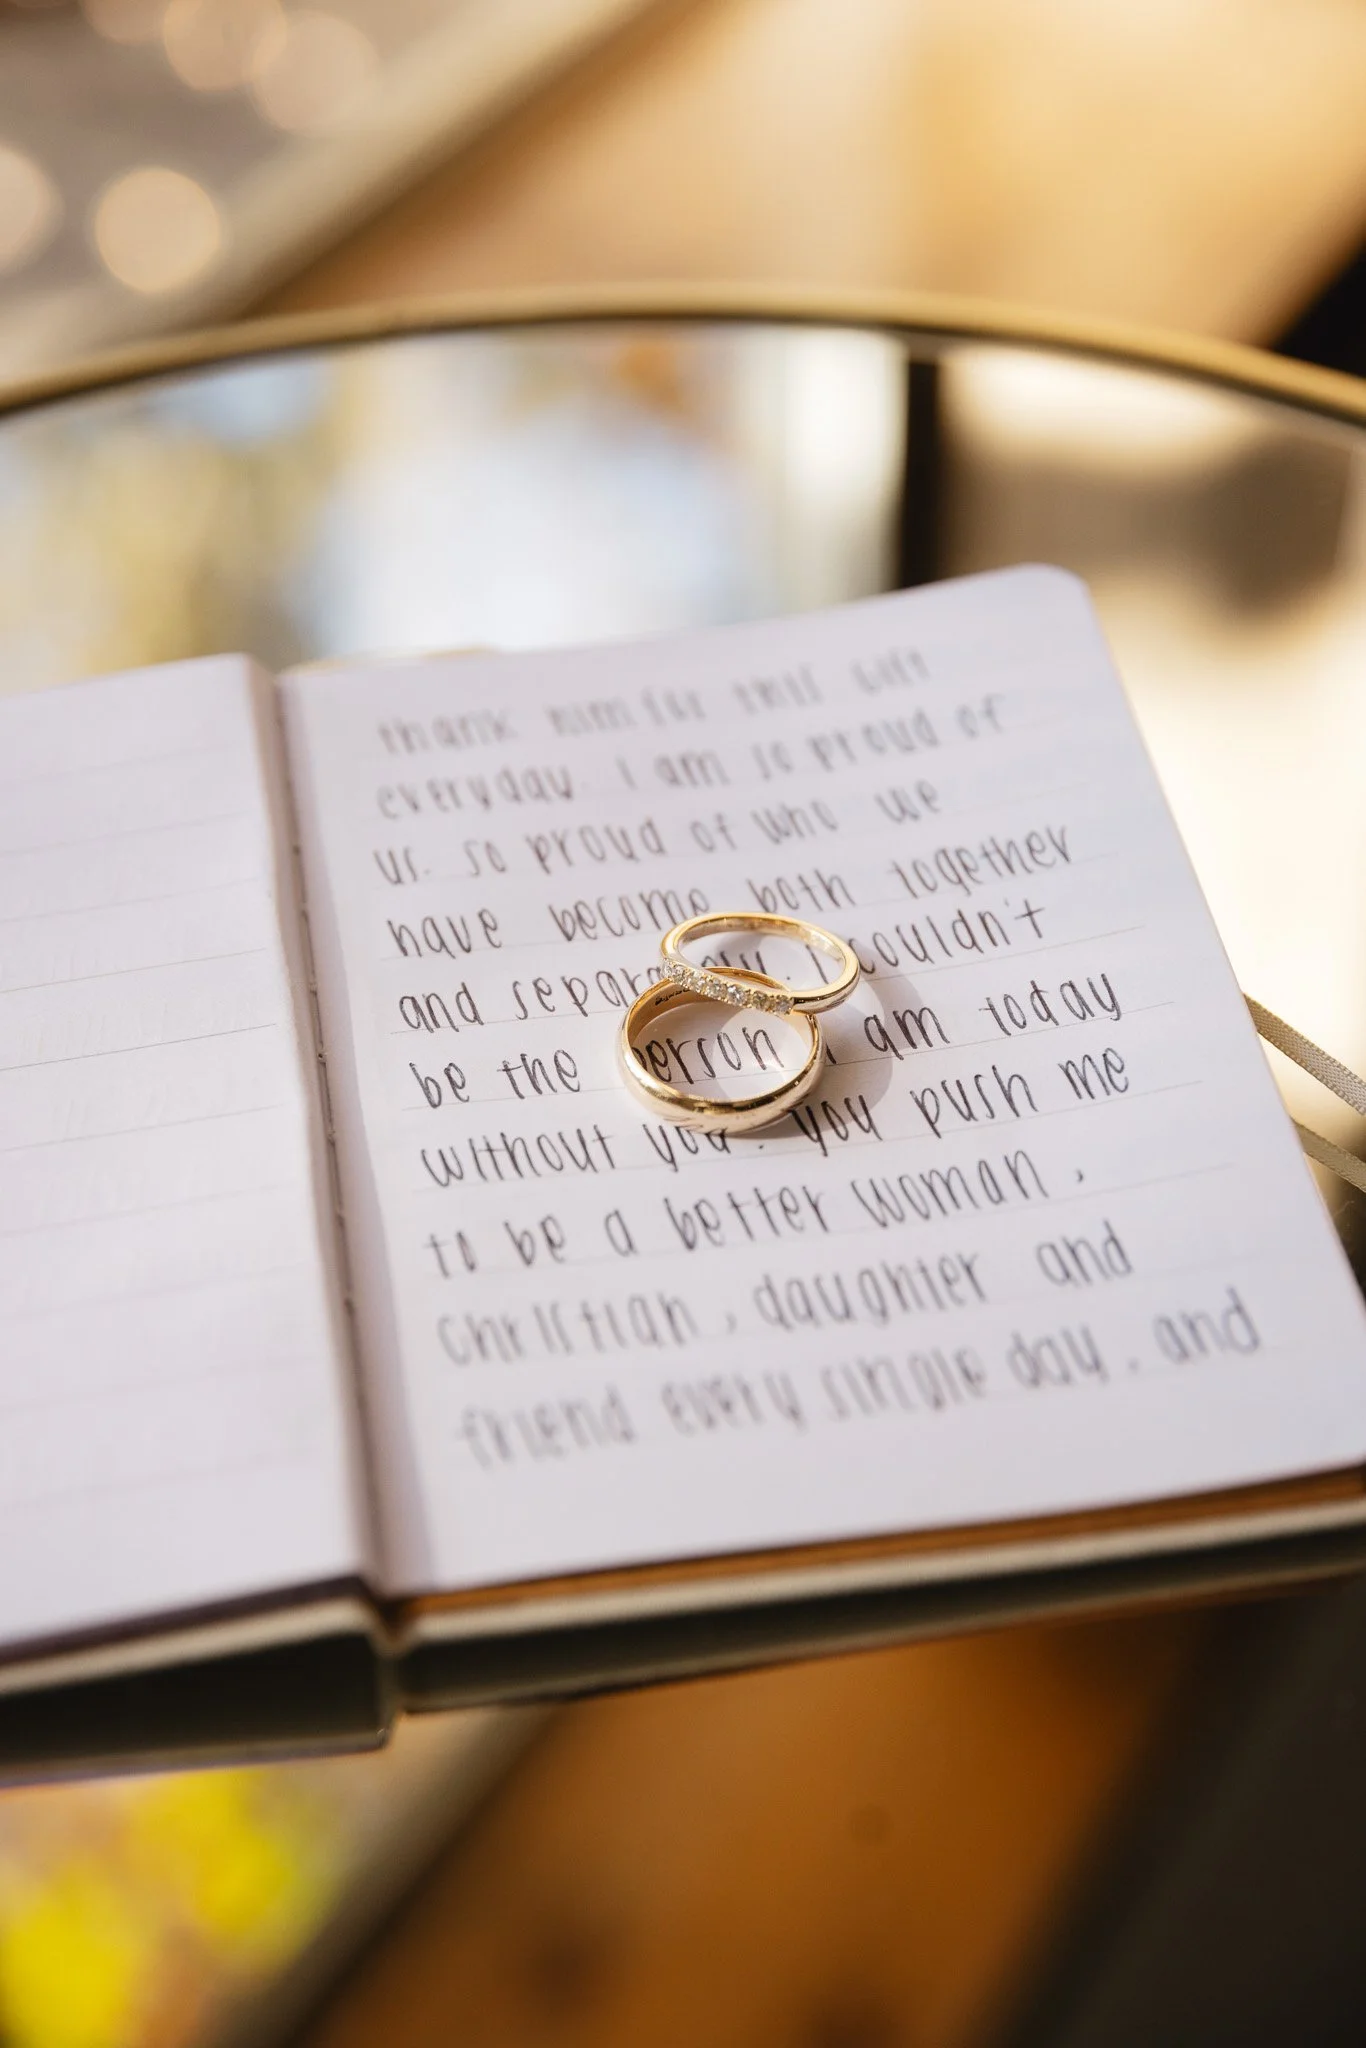 thank him for this gift
everyday. I am so proud of
us. so proud of who we
have become both together
and separately. I couldn't
be the person I am today
without you. you push me
to be a better woman,
christian, daughter and
friend every single day. and